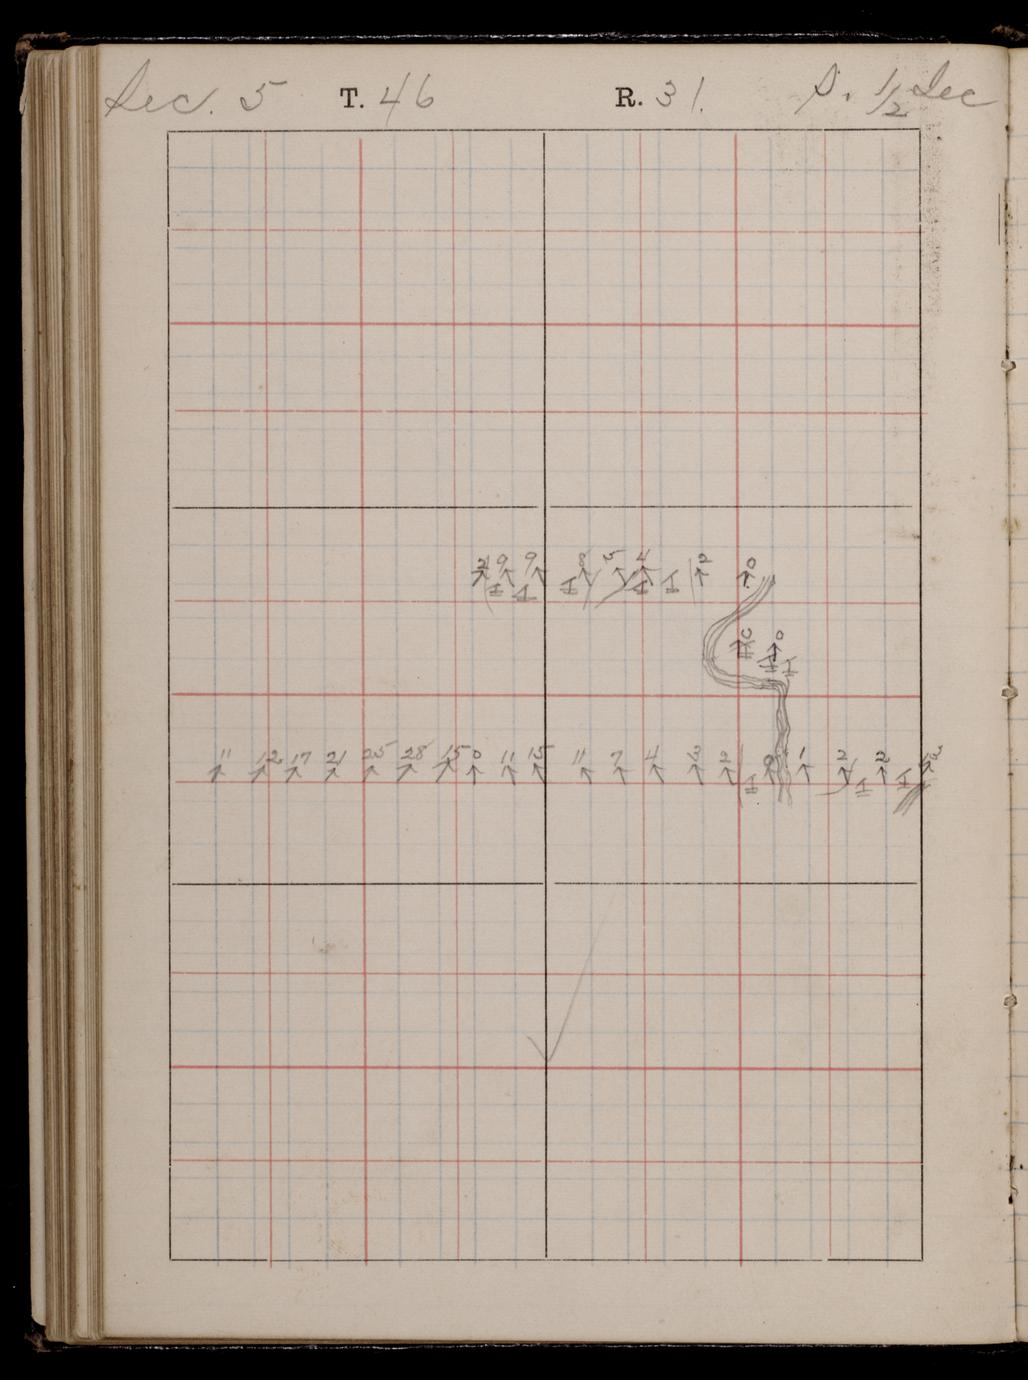 Sec. 5 T. 46 R. 31. S. 1/2 Sec
9 9 8 5 4 2 0
0 0
11 12 17 21 25 28 15 0 11 15 11 7 4 3 2 0 1 2 2 3